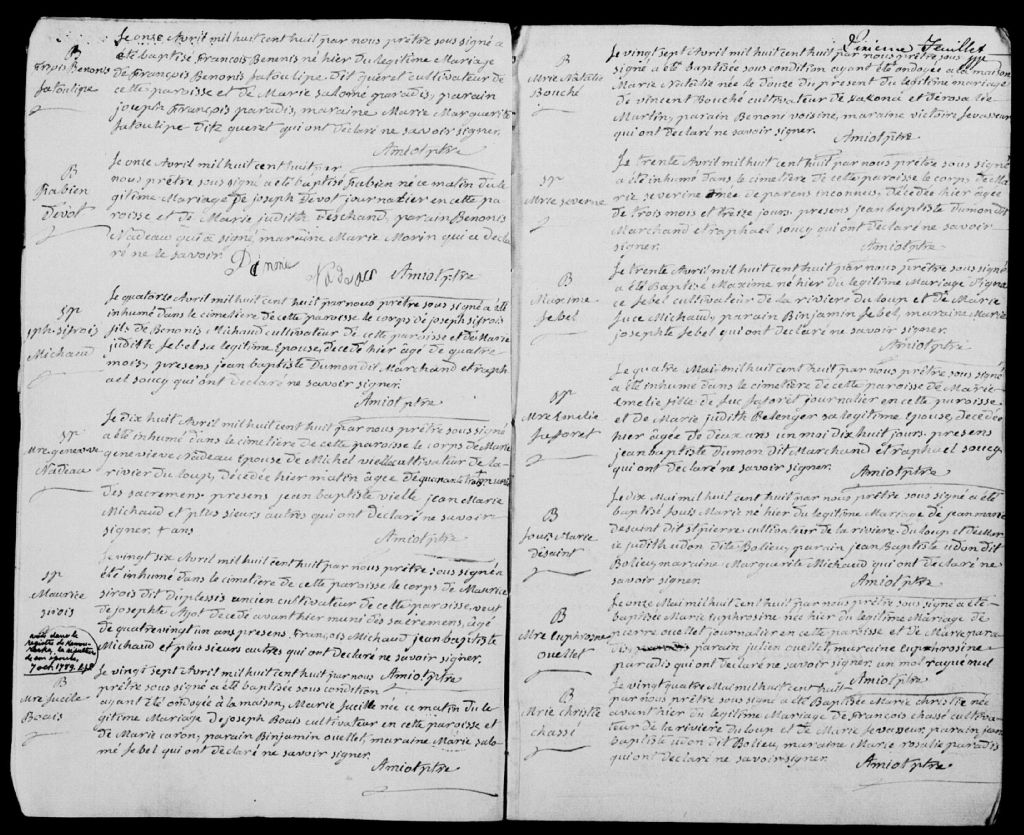 B
frçois Benonis
Laloulipe
Le onze Avril mil huit cent huit par nous prêtre sous signé a
été baptisé françois Benonis né hier du legitime Mariage
de françois Benonis Laloulipe dit queret cultivateur de
cette paroisse et de Marie salomé paradis, parain
joseph françois paradis, maraine Marie Marguerite
Laloulipe dite queret qui ont declaré ne savoir signer.
Amiot ptre
B
fabien
devot
Le onze Avril mil huit cent huit par
nous prêtre sous signé a été baptisé fabien né ce matin du le
gitime Mariage de joseph devot journalier en cette pa
roisse et de Marie judith deschand, parain Benonis
Nadeau qui a signé, maraine Marie Morin qui a decla
ré ne le savoir.
Amiot ptre
sp
jph sifrois
Michaud
Le quatorse Avril mil huit cent huit par nous prêtre sous signé a été
inhumé dans le cimetière de cette paroisse le corps de joseph sifrois
fils de Benonis Michaud cultivateur de cette paroisse et de Marie
judith Lebel sa legitime Epouse, decedé hier agé de quatre
mois, presens jean baptiste dumon dit Marchand et raph
ael soucy qui ont declaré ne savoir signer.
Amiot ptre
sp
Mre genevieve
Nadeau
Le dix huit Avril mil huit cent huit par nous prêtre sous signé
a été inhumé dans le cimetière de cette paroisse le corps de Marie
genevieve Nadeau Epouse de Michel vielle cultivateur de la
rivier du loup, décédée hier matin agée de quarante trois munie
des sacremens presens jean baptiste vielle jean Marie
Michaud et plus sieurs autres qui ont declaré ne savoir
signer. + ans
Amiot ptre
sp
Maurice
sirois
Le vingt six Avril mil huit cent huit par nous prêtre sous signé a
été inhumé dans le cimetière de cette paroisse le corps de Maurice
sirois dit duplessis ancien cultivateur de cette paroisse, veuf
de josephte Ajot decedé avant hier muni des sacremens, agé
de quatre vingt un ans presens françois Michaud jean baptiste
Michaud et plusieurs autres qui ont declaré ne savoir signer.
Amiot ptre
dans le
registre de
la sépulture
de son épouse
1789
B
Mre Lucile
Boais
Le vingt sept Avril mil huit cent huit par nous
prêtre sous signé a été baptisée sous condition
ayant été ondoyé a la maison, Marie Lucille née ce matin du le
gitime Mariage de joseph Boais cultivateur en cette paroisse et
de Marie caron, parain Binjamin ouellet maraine Marie salo
mé Lebel qui ont declaré ne savoir signer.
Amiot ptre
feuillet
B
Mrie Natalie
Bouché
Le vingt sept Avril mil huit cent huit par nous prêtre sous
signé a été Baptisée sous condition ayant été ondoyée a la maison
Marie Natalie née le douze du present du legitime mariage
de vincent Bouché cultivateur de kakona et de rosalie
Martin, parain Benoni voisine, maraine victoire Levasseur
qui ont declaré ne savoir signer.
Amiot ptre
sp
Mrie severine
Le trente Avril mil huit cent huit par nous prêtre sous signé
a été inhumé dans le cimetière de cette paroisse le corps de Ma
rie severine née de parens inconnus, décédée hier agée
de trois mois et treize jours, presens jean baptiste dumon dit
Marchand et raphael soucy qui ont declaré ne savoir
signer.
Amiot ptre
B
Maxime
Lebel
Le trente Avril mil huit cent huit par nous prêtre sous signé
a été Baptisé Maxime né hier du legitime Mariage
Lebel cultivateur de la rivière du loup et de Marie
Luce Michaud, parain Binjamin Lebel, maraine Marie
josephte Lebel qui ont declaré ne savoir signer.
Amiot ptre
sp
Mre Emelie
Lafforet
Le quatre Mai mil huit cent huit par nous prêtre sous signé
a été inhumé dans le cimetière de cette paroisse de Marie
Emelie fille de Luc Laforet journalier en cette paroisse
et de Marie judith Belenger sa legitime Epouse, decedée
hier agée de deux ans un moi dix huit jours, presens
jean baptiste dumon dit Marchand et raphael soucy
qui ont declaré ne savoir signer.
Amiot ptre
B
Louis Marie
desaint
Le dix Mai mil huit cent huit par nous prêtre sous signé a été
baptisé Louis Marie né hier du legitime Mariage de jean marie
desaint dit st pierre cultivateur de la riviere du loup et de Mar
ie judith udon dite Bolieu, parain jean Baptiste udon dit
Bolieu, maraine Marguerite Michaud qui ont declaré ne
savoir signer.
Amiot ptre
B
Mre Euphrosine
ouellet
Le onze Mai mil huit cent huit par nous prêtre sous signé a été
baptisée Marie Euphrosine née hier du legitime Mariage de
pierre ouellet journalier en cette paroisse et de Marie para
dis parain julien ouellet maraine Euphrosine
paradis qui ont declaré ne savoir signer, un mot rayé nul
Amiot ptre
B
Mrie christie
chassé
Le vingt quatre Mai mil huit cent huit
par nous prêtre sous signé a été Baptisée Marie christie née
avant hier du legitime Mariage de françois chassé cultiva
teur de la rivière du loup et de Marie Levasseur, parain jean
baptiste udon dit Bolieu, maraine Marie rosalie paradis
qui ont declaré ne savoir signer.
Amiot ptre